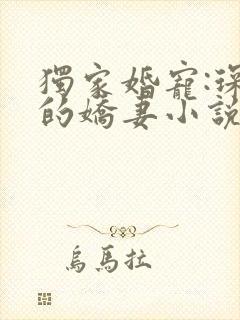 獨家婚寵:琛
的嬌妻小說
烏馬拉